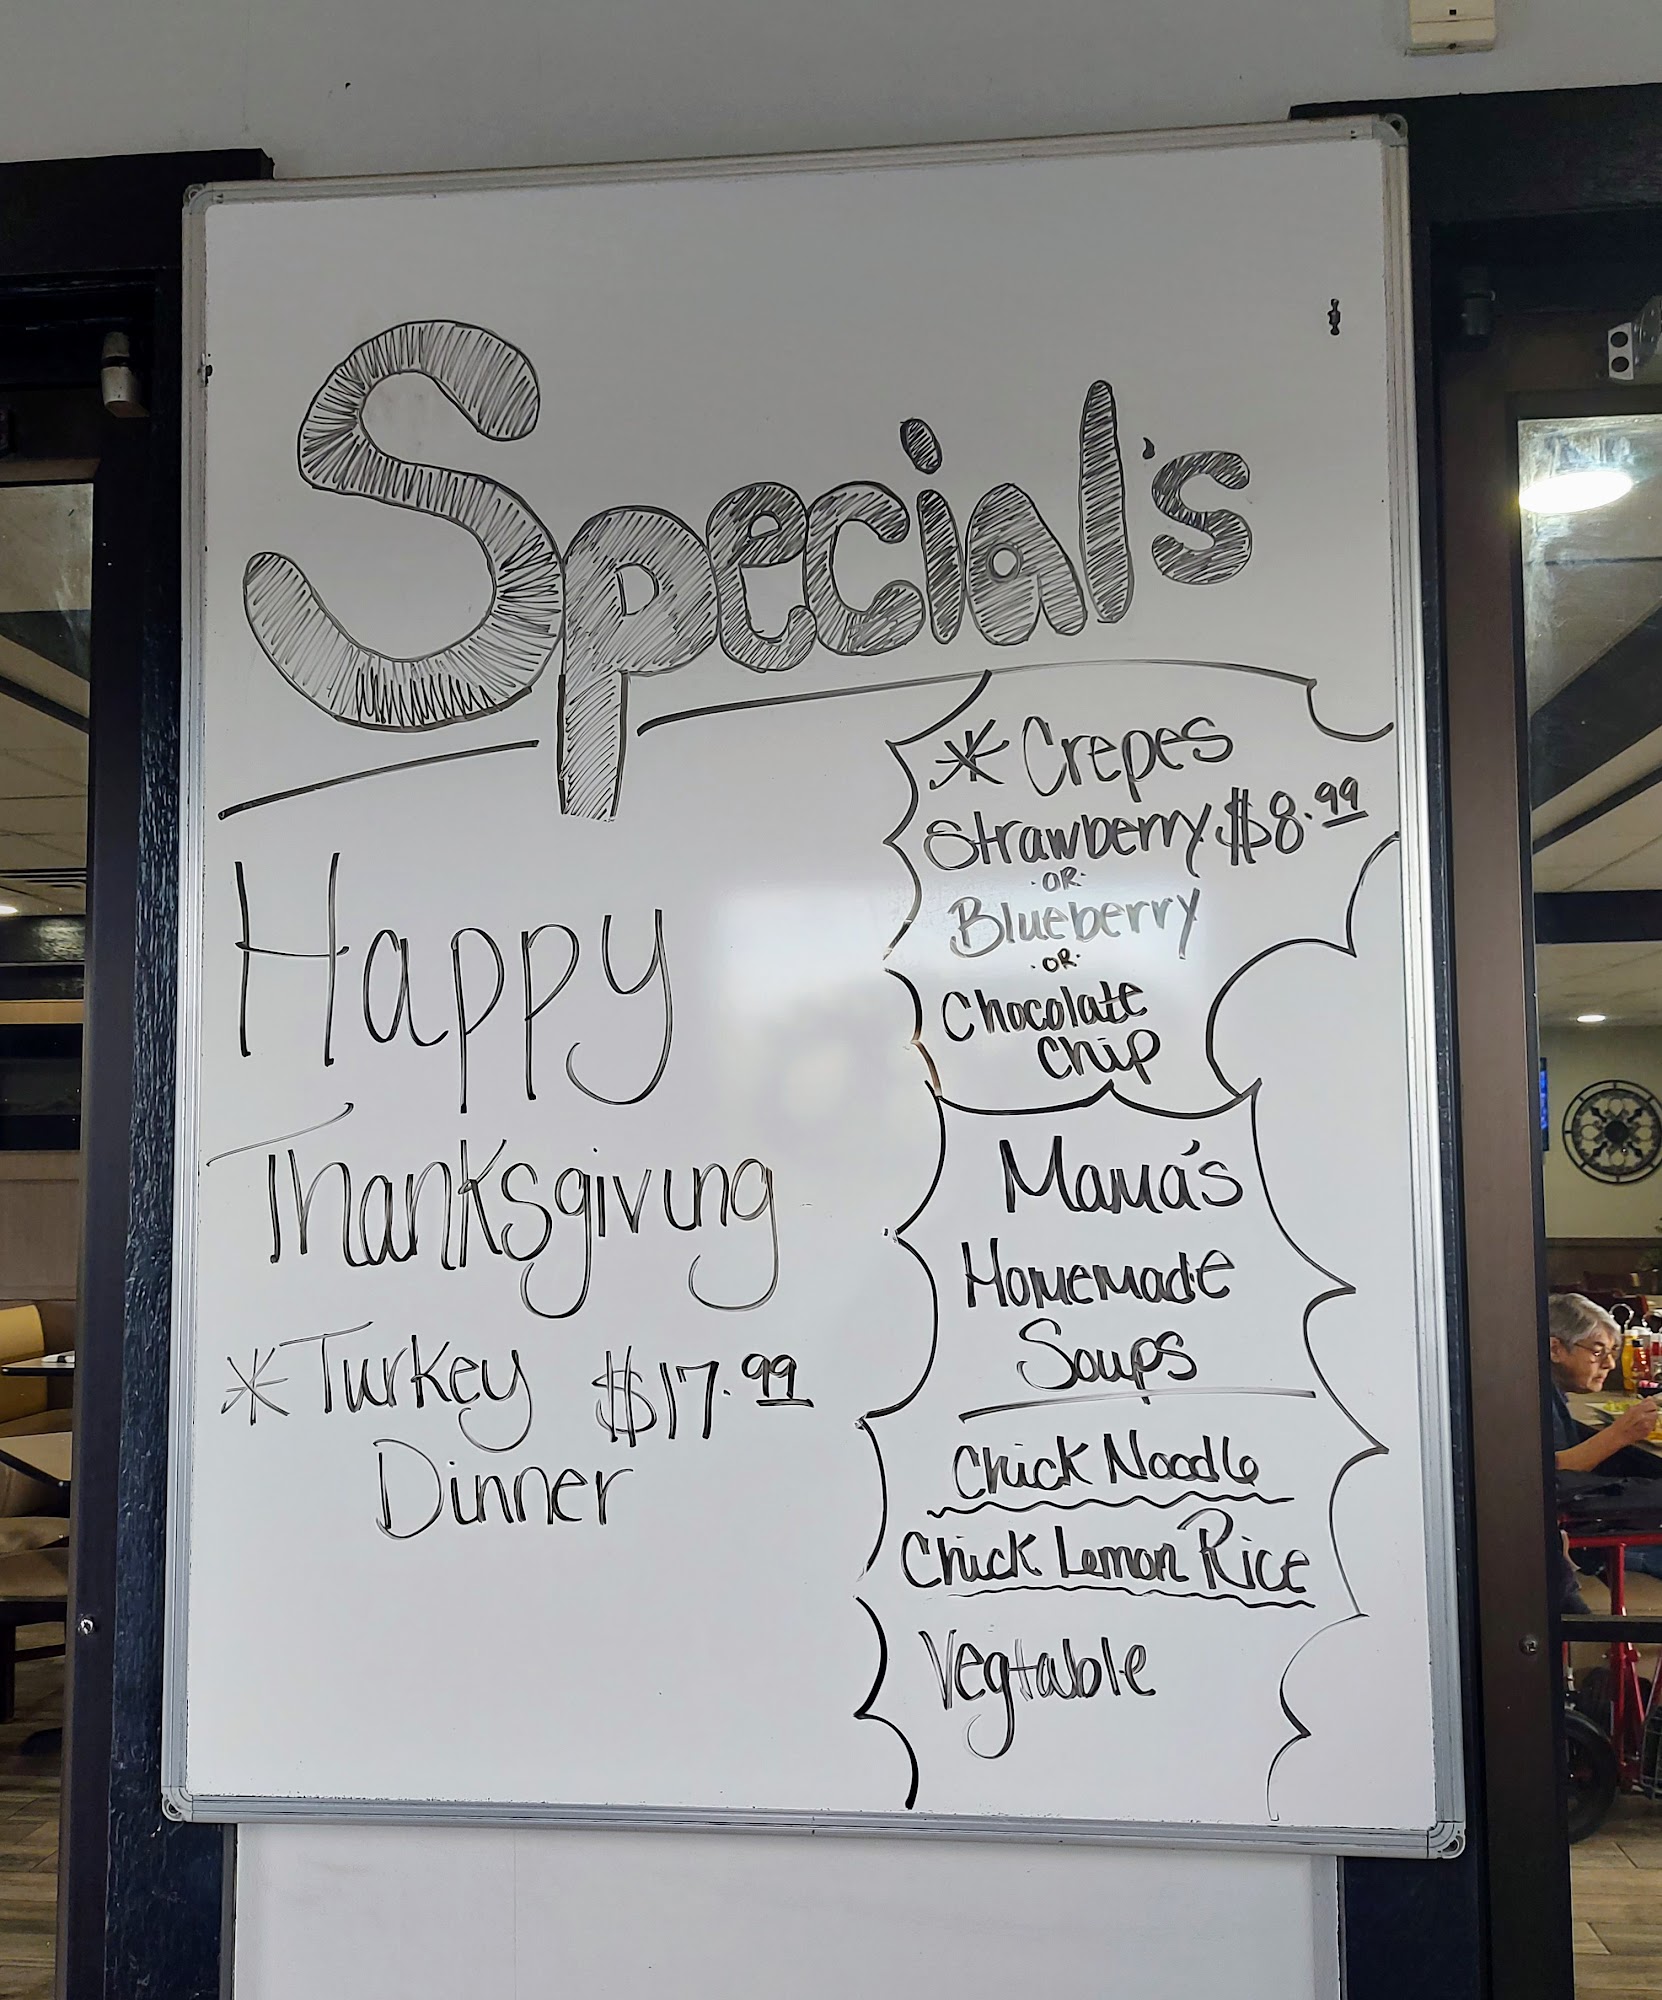 Special's
Happy
Thanksgiving
* Turkey $17.99
Dinner
* Crepes
Strawberry $8.99
·OR·
Blueberry
·OR·
Chocolate
Chip
Mama's
Homemade
Soups
Chick Noodle
Chick Lemon Rice
Vegtable